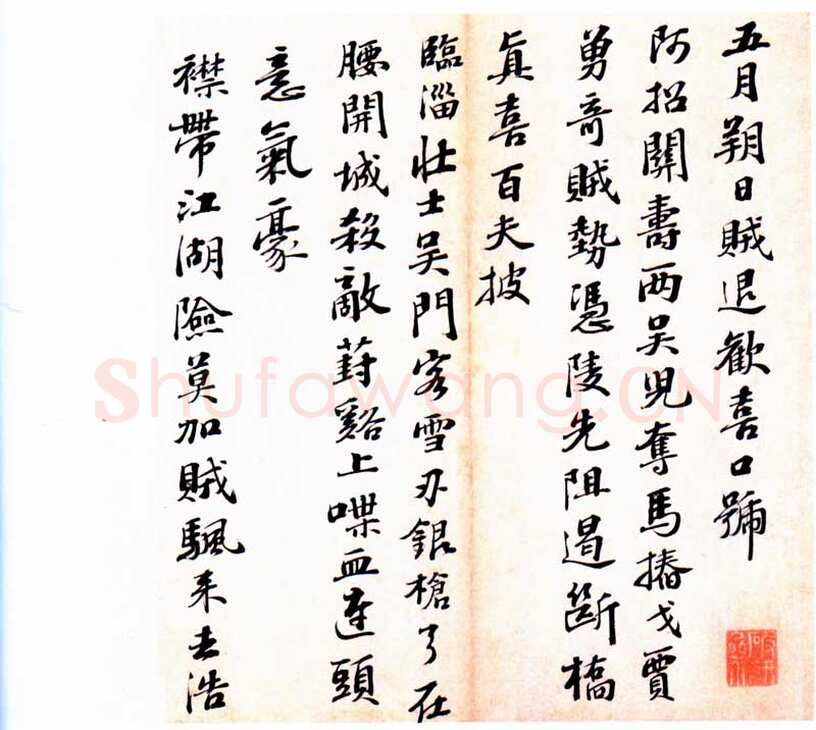 五月朔日賊退歡喜口號
阿招關壽両吴兒奪馬摏戈賈
勇奇賊勢憑陵先阻遏斷橋
真喜百夫披
臨淄壯士吴門客雪刃銀槍弓在
腰開城殺敵葑谿上喋血連頭
意氣豪
襟帶江湖險莫加賊颿来去浩
Shufawang.CN